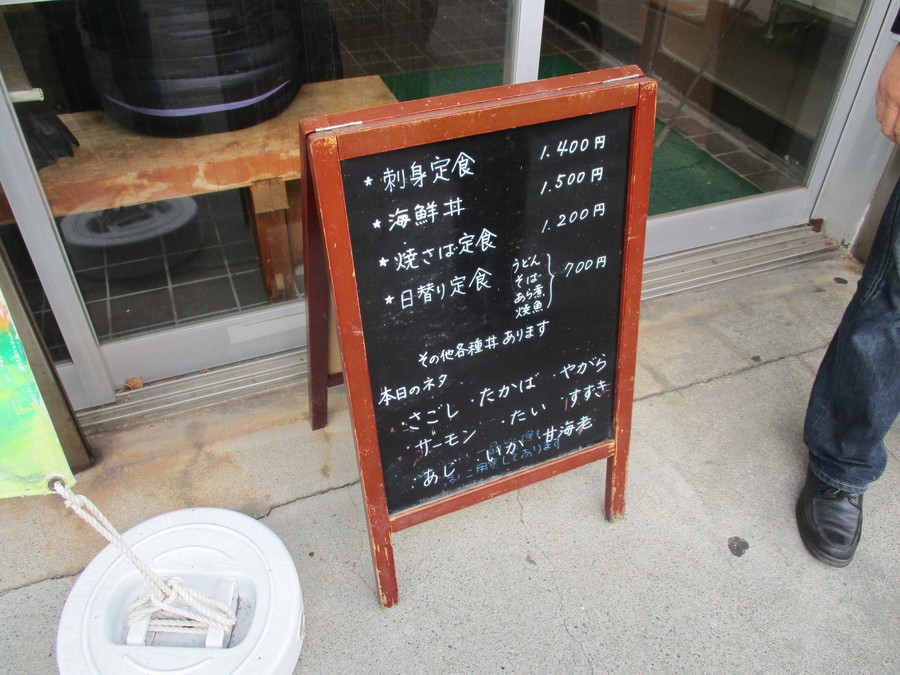 * 刺身定食 1.400円
* 海鮮丼 1.500円
* 焼さば定食 1.200円
* 日替り定食 うどん そば あら煮 焼魚 700円
その他各種丼あります
本日のネタ
・さごし ・たかば ・やがら
・サーモン ・たい ・すすき
・あじ ・いか ・甘海老